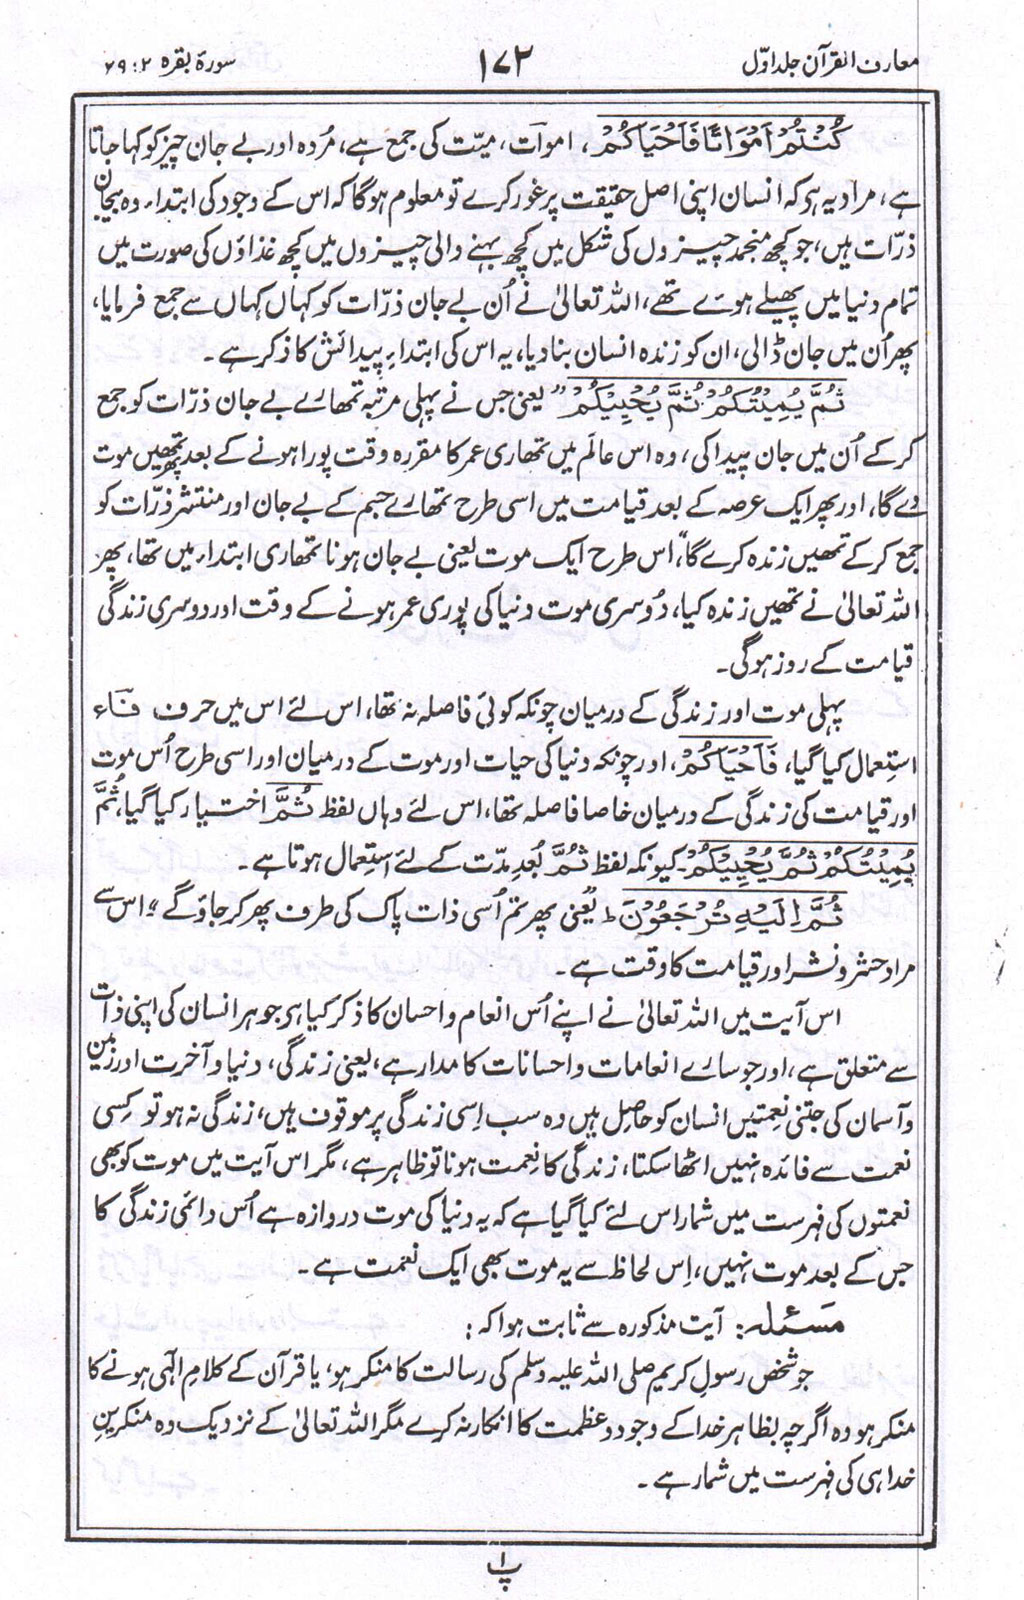 معارف القرآن جلد اوّل
۱۷۳
سورۃ بقرہ ۲ : ۲۹
كُنْتُمْ اَمْوَاتًا فَاَحْيَاكُمْ، اموات، میّت کی جمع ہے، مُردہ اور بے جان چیز کو کہا جاتا
ہے، مراد یہ ہی کہ انسان اپنی اصل حقیقت پر غور کرے تو معلوم ہوگا کہ اس کے وجود کی ابتداء وہ بیجان
ذرّات ہیں، جو کچھ منجمد چیزوں کی شکل میں کچھ بہنے والی چیزوں میں کچھ غذاؤں کی صورت میں
تمام دنیا میں پھیلے ہوئے تھے، اللہ تعالیٰ نے اُن بے جان ذرّات کو کہاں کہاں سے جمع فرمایا،
پھر اُن میں جان ڈالی، ان کو زندہ انسان بنا دیا، یہ اس کی ابتداءِ پیدائش کا ذکر ہے۔
ثُمَّ يُمِيْتُكُمْ ثُمَّ يُحْيِيْكُمْ ”یعنی جس نے پہلی مرتبہ تمھارے بے جان ذرّات کو جمع
کر کے اُن میں جان پیدا کی، وہ اس عالَم میں تمھاری عمر کا مقررہ وقت پورا ہونے کے بعد تمھیں موت
دے گا، اور پھر ایک عرصہ کے بعد قیامت میں اسی طرح تمھارے جسم کے بے جان اور منتشر ذرّات کو
جمع کر کے تمھیں زندہ کرے گا“، اس طرح ایک موت یعنی بے جان ہونا تمھاری ابتداء میں تھا، پھر
اللہ تعالیٰ نے تمھیں زندہ کیا، دُوسری موت دنیا کی پوری عمر ہونے کے وقت اور دوسری زندگی
قیامت کے روز ہوگی۔
پہلی موت اور زندگی کے درمیان چونکہ کوئی فاصلہ نہ تھا، اس لئے اس میں حرف فَاء
استِعمال کیا گیا، فَاَحْيَاكُمْ، اور چونکہ دنیا کی حیات اور موت کے درمیان اور اسی طرح اُس موت
اور قیامت کی زندگی کے درمیان خاصا فاصلہ تھا، اس لئے وہاں لفظ ثُمَّ اختیار کیا گیا، ثُمَّ
يُمِيْتُكُمْ ثُمَّ يُحْيِيْكُمْ۔ کیونکہ لفظ ثُمَّ بُعدِ مدّت کے لئے استِعمال ہوتا ہے۔
ثُمَّ اِلَيْهِ تُرْجَعُوْنَ ط ”یعنی پھر تم اُسی ذات پاک کی طرف پھر کر جاؤ گے“ اس سے
مراد حشر و نشر اور قیامت کا وقت ہے۔
اس آیت میں اللہ تعالیٰ نے اپنے اُس انعام و احسان کا ذکر کیا ہی جو ہر انسان کی اپنی ذات
سے متعلق ہے، اور جو سارے انعامات و احسانات کا مدار ہے، یعنی زندگی، دنیا و آخرت اور زمین
و آسمان کی جتنی نعمتیں انسان کو حاصِل ہیں وہ سب اِسی زندگی پر موقوف ہیں، زندگی نہ ہو تو کِسی
نعمت سے فائدہ نہیں اٹھا سکتا، زندگی کا نِعمت ہونا تو ظاہر ہے، مگر اس آیت میں موت کو بھی
نعمتوں کی فہرست میں شمار اس لئے کیا گیا ہے کہ یہ دنیا کی موت دروازہ ہے اُس دائمی زندگی کا
جس کے بعد موت نہیں، اِس لحاظ سے یہ موت بھی ایک نعمت ہے۔
مَسْئلہ: آیت مذکورہ سے ثابت ہوا کہ :
جو شخص رسولِ کریم صلی اللہ علیہ وسلم کی رسالت کا منکر ہو، یا قرآن کے کلامِ الٰہی ہونے کا
منکر ہو وہ اگرچہ بظاہر خدا کے وجود و عظمت کا انکار نہ کرے مگر اللہ تعالیٰ کے نزدیک وہ منکرینِ
خدا ہی کی فہرست میں شمار ہے۔
پ۱